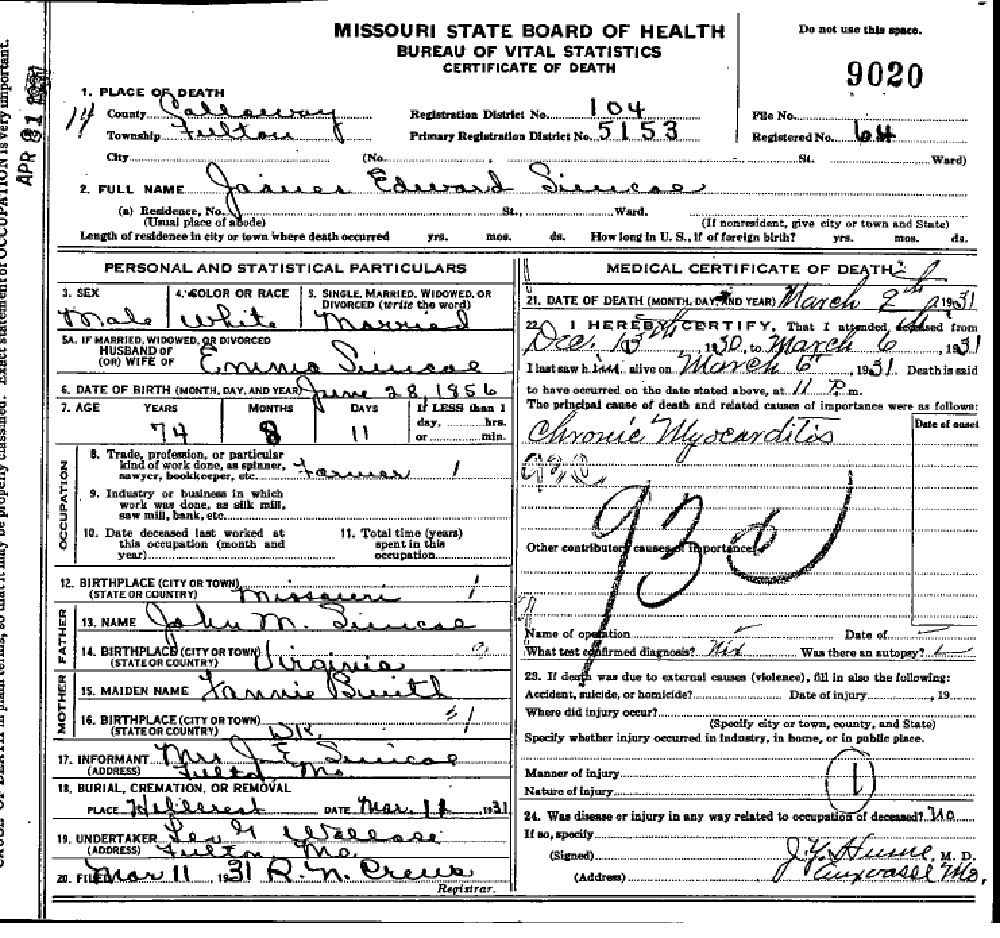 MISSOURI STATE BOARD OF HEALTH
BUREAU OF VITAL STATISTICS
CERTIFICATE OF DEATH
Do not use this space.
9020
1. PLACE OF DEATH
14 County Callaway Registration District No. 104 File No.
Township Fulton Primary Registration District No. 5153 Registered No. 64
City (No. St. Ward)
2. FULL NAME James Edward Simcoe
(a) Residence, No. St., Ward.
(Usual place of abode) (If nonresident, give city or town and State)
Length of residence in city or town where death occurred yrs. mos. ds. How long in U. S., if of foreign birth? yrs. mos. ds.
PERSONAL AND STATISTICAL PARTICULARS
3. SEX 4. COLOR OR RACE 5. SINGLE, MARRIED, WIDOWED, OR DIVORCED (write the word)
Male White Married
5A. IF MARRIED, WIDOWED, OR DIVORCED
HUSBAND OF
(OR) WIFE OF Emma Simcoe
6. DATE OF BIRTH (MONTH, DAY, AND YEAR) June 28, 1856
7. AGE YEARS MONTHS DAYS If LESS than 1
day, hrs.
or min.
74 8 11
OCCUPATION
8. Trade, profession, or particular
kind of work done, as spinner,
sawyer, bookkeeper, etc. Farmer 1
9. Industry or business in which
work was done, as silk mill,
saw mill, bank, etc.
10. Date deceased last worked at
this occupation (month and
year)
11. Total time (years)
spent in this
occupation
12. BIRTHPLACE (CITY OR TOWN)
(STATE OR COUNTRY) Missouri 1
FATHER
13. NAME John M. Simcoe
14. BIRTHPLACE (CITY OR TOWN)
(STATE OR COUNTRY) Virginia
MOTHER
15. MAIDEN NAME Fannie Smith
16. BIRTHPLACE (CITY OR TOWN)
(STATE OR COUNTRY) D.K.
17. INFORMANT Mrs J. E. Simcoe
(ADDRESS) Fulton Mo.
18. BURIAL, CREMATION, OR REMOVAL
PLACE Hillcrest DATE Mar. 11 1931
19. UNDERTAKER Wallace
(ADDRESS) Fulton Mo.
20. FILED Mar 11 1931 R. N. Crews
Registrar.
MEDICAL CERTIFICATE OF DEATH
21. DATE OF DEATH (MONTH, DAY, AND YEAR) March 1931
22. I HEREBY CERTIFY, That I attended deceased from
Dec. 13th 1930, to March 6, 1931
I last saw him alive on March 6, 1931. Death is said
to have occurred on the date stated above, at 11 P. m.
The principal cause of death and related causes of importance were as follows:
Date of onset
Chronic Myocarditis
930
Other contributory causes of importance:
Name of operation Date of
What test confirmed diagnosis? Was there an autopsy?
23. If death was due to external causes (violence), fill in also the following:
Accident, suicide, or homicide? Date of injury , 19
Where did injury occur?
(Specify city or town, county, and State)
Specify whether injury occurred in industry, in home, or in public place.
Manner of injury
Nature of injury
1
24. Was disease or injury in any way related to occupation of deceased? No
If so, specify
(Signed) J. Y. Hume, M. D.
(Address) Auxvasse Mo.